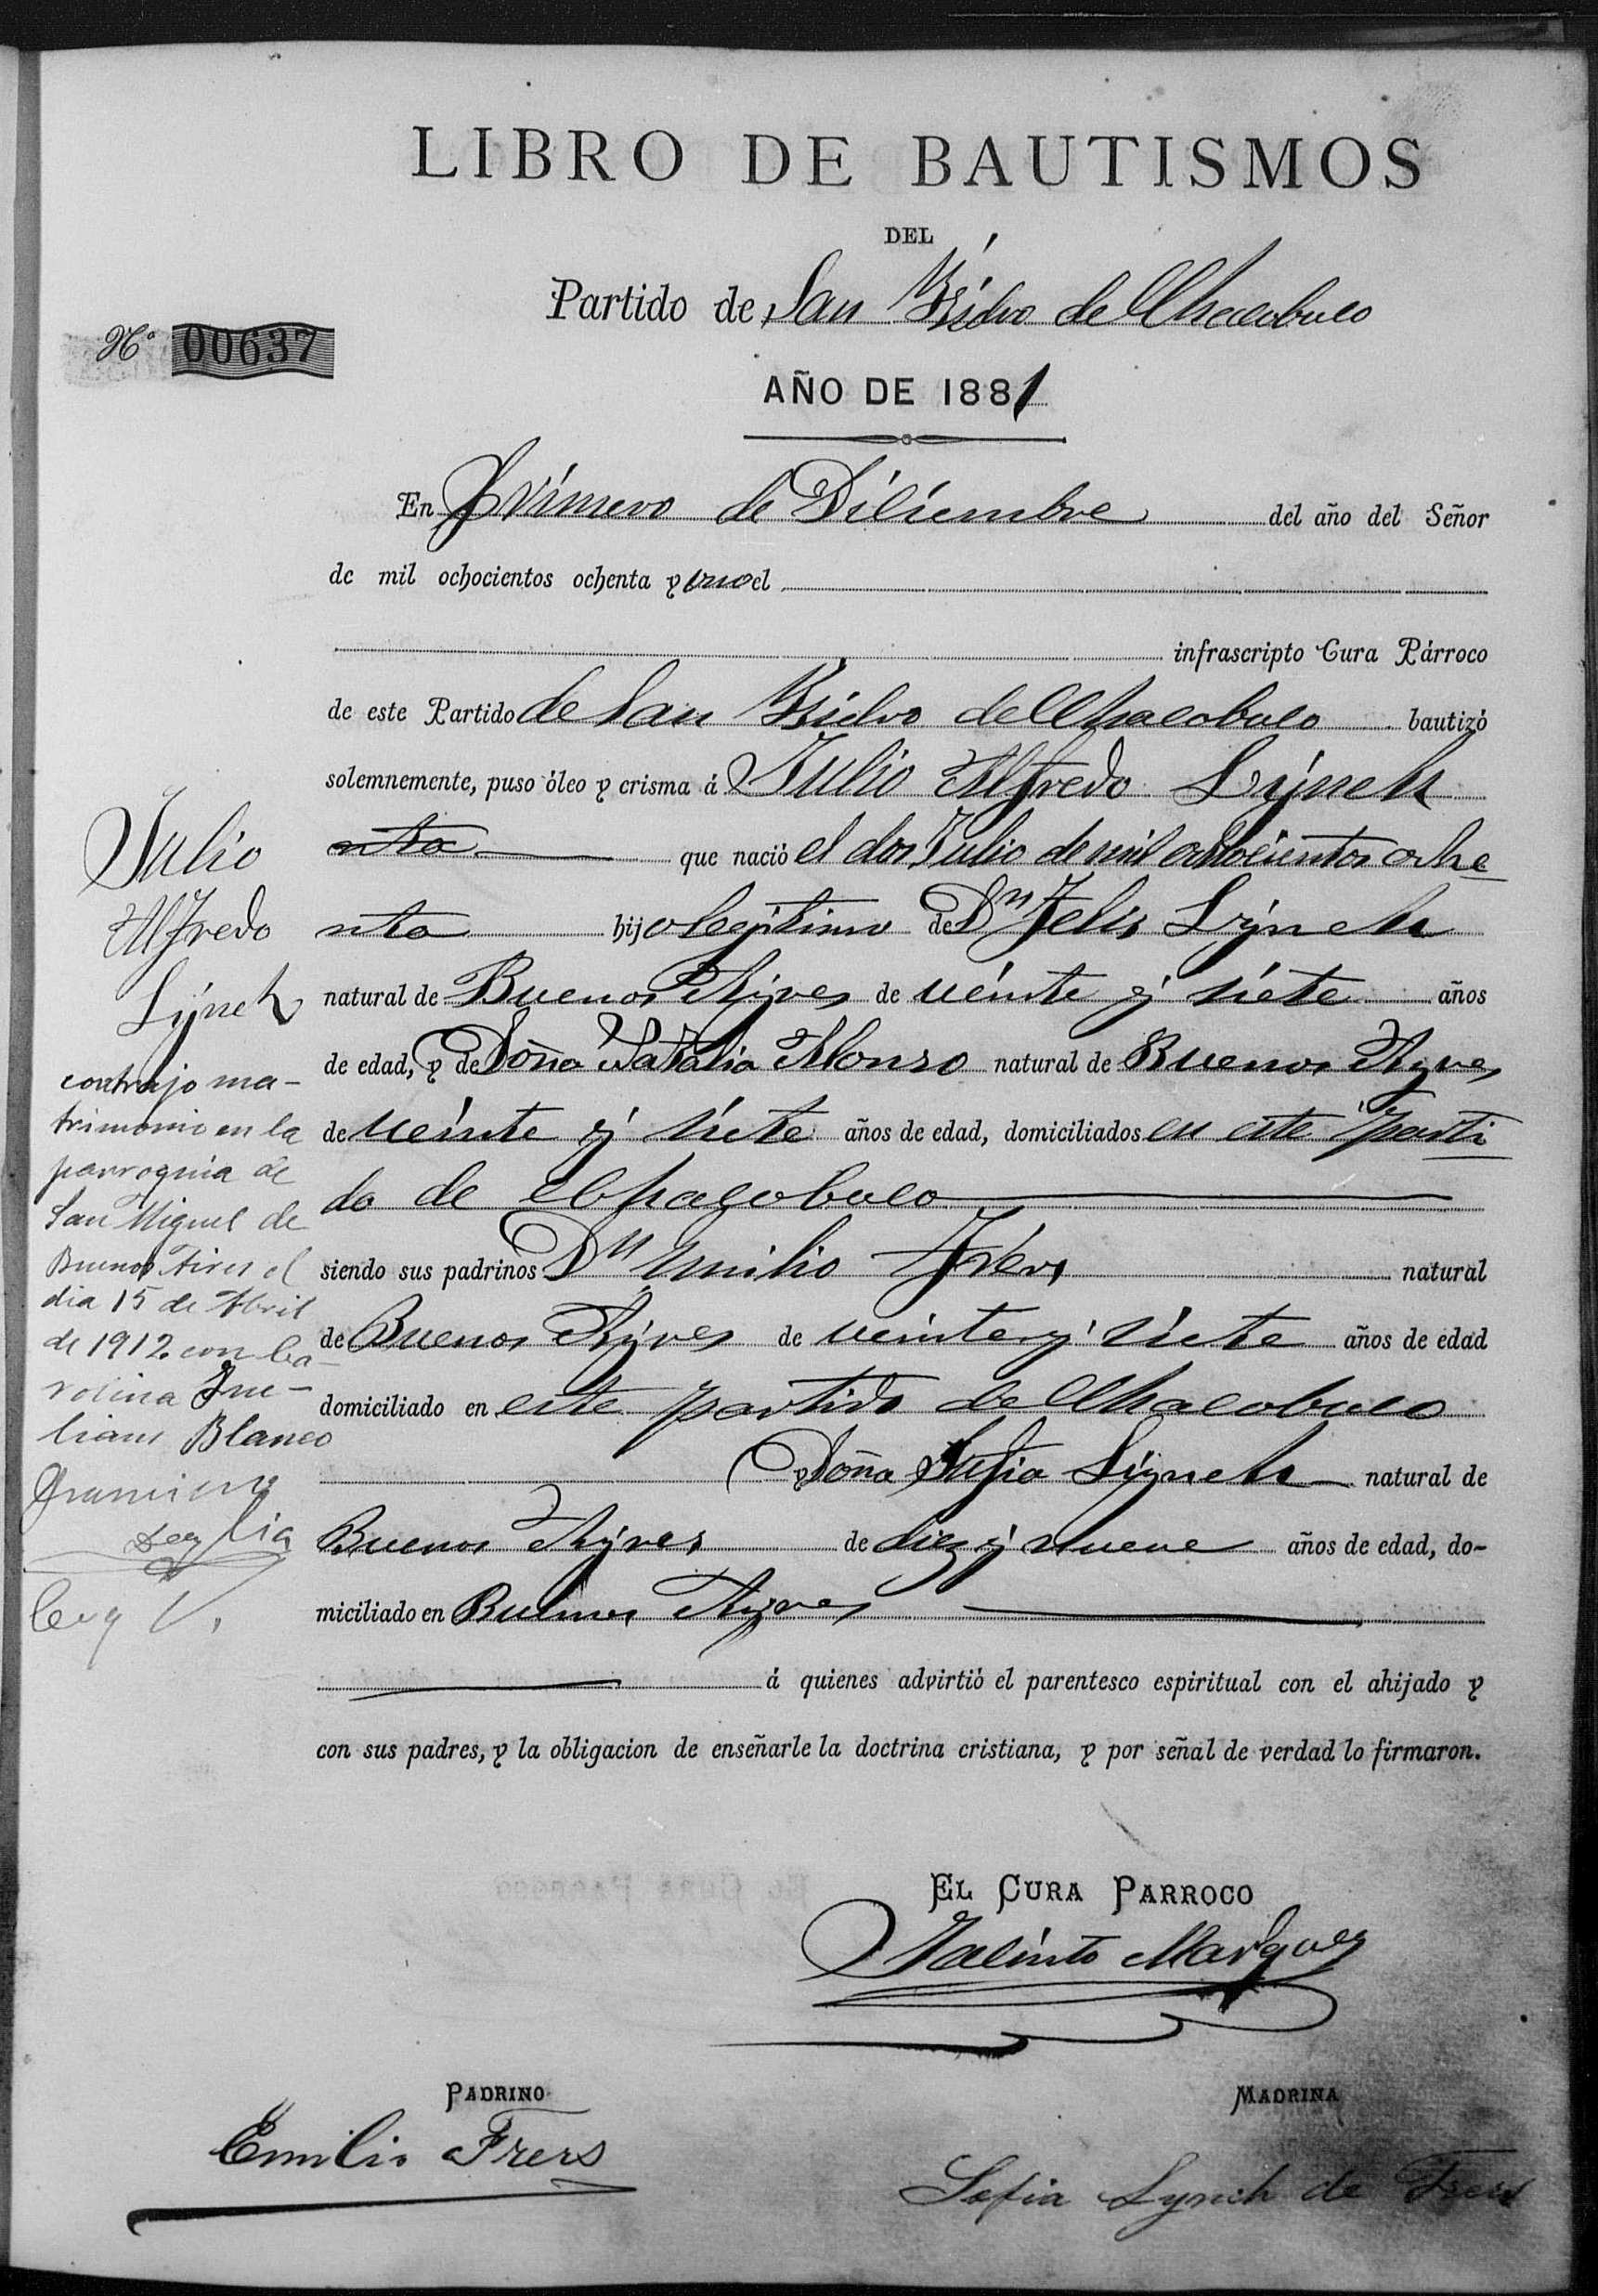 LIBRO DE BAUTISMOS
DEL
Partido de San Ysidro de Chacabuco
Nº 00637
AÑO DE 1881
En Primero de Diciembre del año del Señor
de mil ochocientos ochenta y uno el
infrascripto Cura Párroco
de este Partido de San Ysidro de Chacabuco bautizó
solemnemente, puso óleo y crisma á Julio Alfredo Lynch
nta que nació el dos Julio de mil ochocientos oche
nta hijo legitimo de Dn Felis Lynch
natural de Buenos Ayres de veinte y siete años
de edad, y de Doña Natalia Alonso natural de Buenos Ayres
de veinte y siete años de edad, domiciliados en este parti
do de Chacabuco
siendo sus padrinos Dn Emilio Frers natural
de Buenos Ayres de veinte y siete años de edad
domiciliado en este partido de Chacabuco
y Doña Sofia Lynch natural de
Buenos Ayres de diez y nueve años de edad, do-
miciliado en Buenos Ayres
á quienes advirtió el parentesco espiritual con el ahijado y
con sus padres, y la obligacion de enseñarle la doctrina cristiana, y por señal de verdad lo firmaron.
Julio
Alfredo
Lynch
contrajo ma-
trimonio en la
parroquia de
San Miguel de
Buenos Aires el
dia 15 de Abril
de 1912 con Ca-
rolina
Blanco
EL CURA PARROCO
Jacinto Marquez
PADRINO
Emilio Frers
MADRINA
Sofia Lynch de Frers